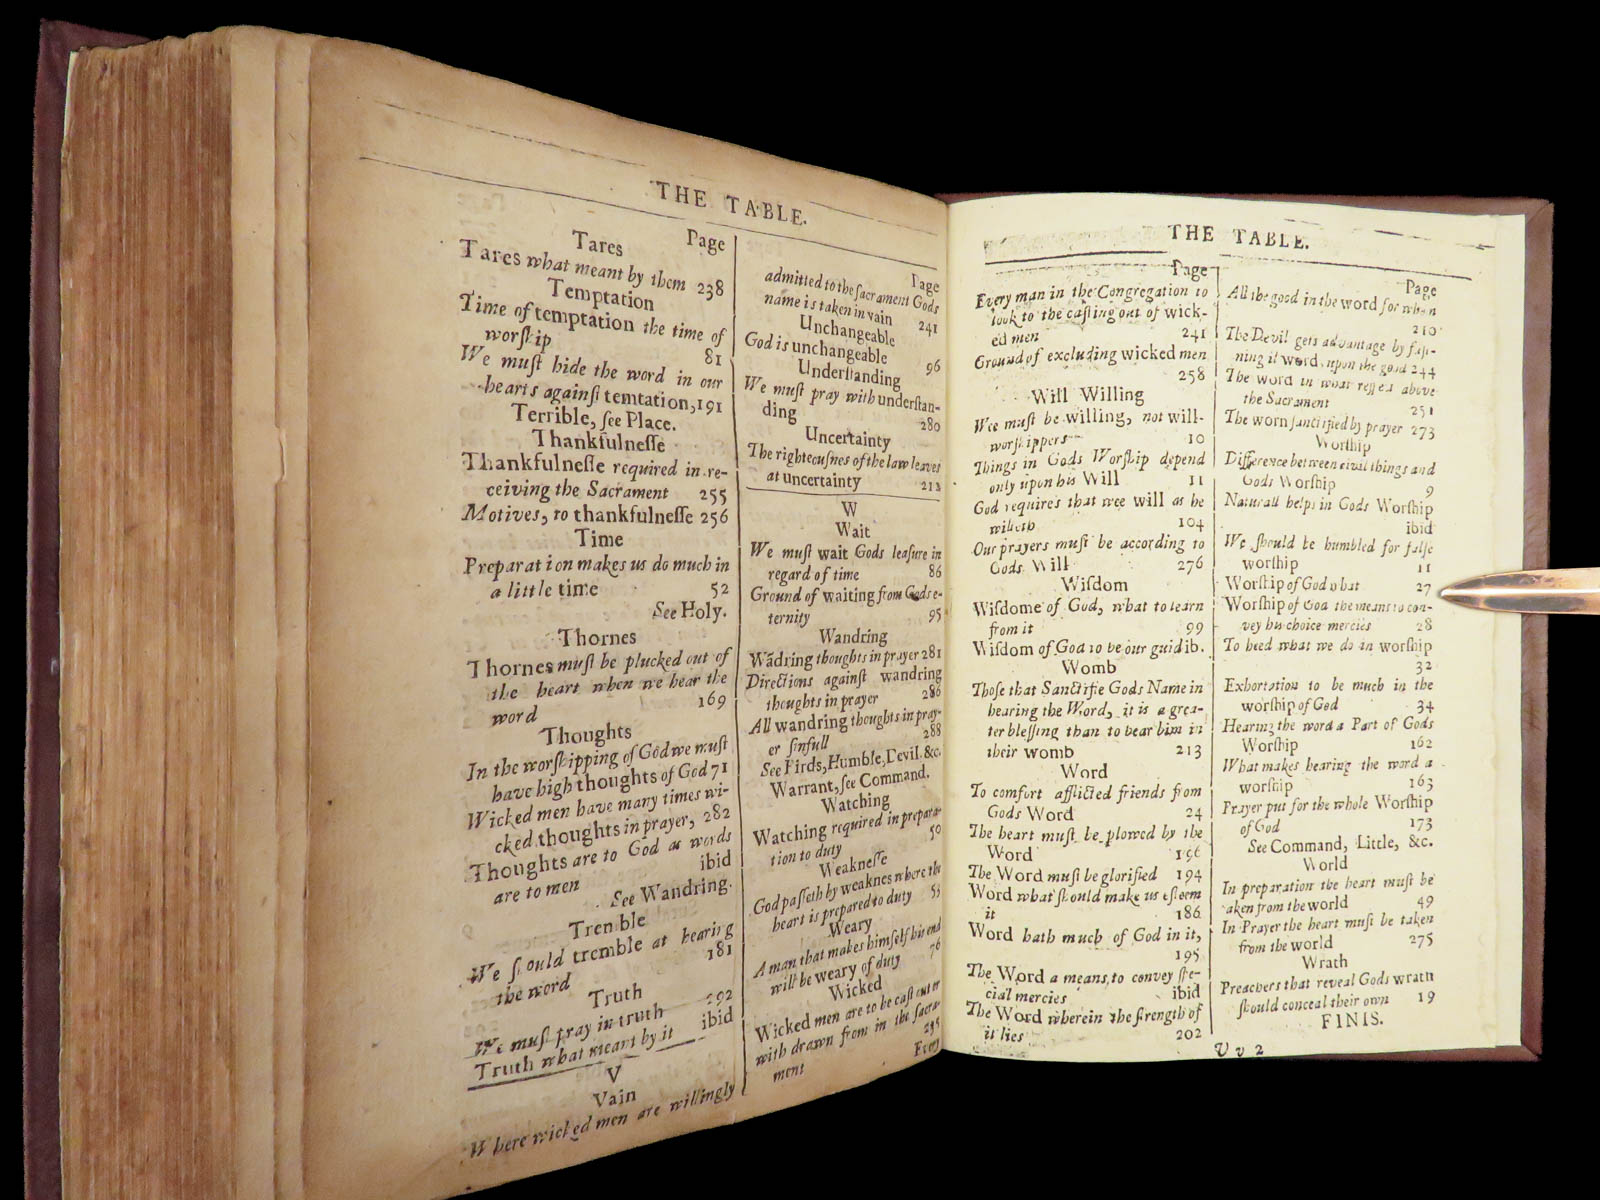 THE TABLE.
Tares Page
Tares what meant by them 238
Temptation
Time of temptation the time of
worſhip 81
We muſt hide the word in our
hearts againſt temtation, 191
Terrible, ſee Place.
Thankfulneſſe
Thankfulneſſe required in re-
ceiving the Sacrament 255
Motives, to thankfulneſſe 256
Time
Preparation makes us do much in
a little time 52
See Holy.
Thornes
Thornes muſt be plucked out of
the heart when we hear the
word 169
Thoughts
In the worſhipping of God we muſt
have high thoughts of God 71
Wicked men have many times wi-
cked thoughts in prayer, 282
Thoughts are to God as words
are to men ibid
See Wandring.
Tremble
We ſhould tremble at hearing
the word 181
Truth
We muſt pray in truth 292
Truth what meant by it ibid
V
Vain
Where wicked men are willingly
Page
admitted to the ſacrament Gods
name is taken in vain 241
Unchangeable
God is unchangeable 96
Underſtanding
We muſt pray with underſtan-
ding 280
Uncertainty
The righteouſnes of the law leaves
at uncertainty 213
W
Wait
We muſt wait Gods leaſure in
regard of time 86
Ground of waiting from Gods e-
ternity 95
Wandring
Wādring thoughts in prayer 281
Directions againſt wandring
thoughts in prayer 286
All wandring thoughts in pray-
er ſinfull 288
See Birds, Humble, Devil. &c.
Warrant, ſee Command.
Watching
Watching required in prepara-
tion to duty 50
Weakneſſe
God paſſeth by weaknes where the
heart is prepared to duty 55
Weary
A man that makes himſelf his end
will be weary of duty 76
Wicked
Wicked men are to be caſt out or
with drawn from in the ſacra-
ment 235
Every
THE TABLE.
Page
Every man in the Congregation to
look to the caſting out of wick-
ed men 241
Ground of excluding wicked men
258
Will Willing
Wee muſt be willing, not will-
worſhippers 10
Things in Gods Worſhip depend
only upon his Will 11
God requires that wee will as he
willeth 104
Our prayers muſt be according to
Gods Will 276
Wiſdom
Wiſdome of God, what to learn
from it 99
Wiſdom of God to be our guid ib.
Womb
Thoſe that Sanctifie Gods Name in
hearing the Word, it is a grea-
ter bleſſing than to bear him in
their womb 213
Word
To comfort afflicted friends from
Gods Word 24
The heart muſt be plowed by the
Word 166
The Word muſt be glorified 194
Word what ſhould make us eſteem
it 186
Word hath much of God in it,
195
The Word a means, to convey ſpe-
cial mercies ibid
The Word wherein the ſtrength of
it lies 202
Page
All the good in the word for when
210
The Devil gets advantage by faſt-
ning il word upon the good 244
The word in what reſpect above
the Sacrament 251
The worn ſanctified by prayer 273
Worſhip
Difference between civil things and
Gods Worſhip 9
Naturall helps in Gods Worſhip
ibid
We ſhould be humbled for falſe
worſhip 11
Worſhip of God what 27
Worſhip of God the means to con-
vey his choice mercies 28
To heed what we do in worſhip
32
Exhortation to be much in the
worſhip of God 34
Hearing the word a Part of Gods
Worſhip 162
What makes hearing the word a
worſhip 163
Prayer put for the whole Worſhip
of God 173
See Command, Little, &c.
World
In preparation the heart muſt be
taken from the world 49
In Prayer the heart muſt be taken
from the world 275
Wrath
Preachers that reveal Gods wrath
ſhould conceal their own 19
FINIS.
V v 2